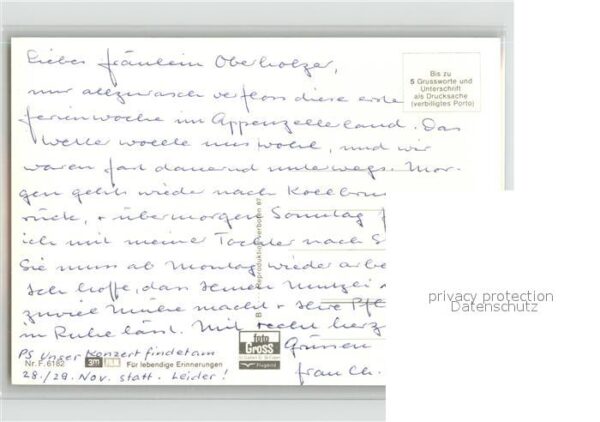 Liebes Fräulein Oberholzer,
nur allzurasch verfloss diese erste
Ferienwoche im Appenzellerland. Das
Wetter wollte uns wohl, und wir
waren fast dauernd unterwegs. Mor-
gen gehts wieder nach Kollbrun
rück, + übermorgen Sonntag f
ich mit meiner Tochter nach S
Sie muss ab Montag wieder arbe
Ich hoffe, dass Ihnen
zuviel Mühe macht + Ihre Pfl
in Ruhe lässt. Mit recht herz
Grüssen
Frau Ch.
PS Unser Konzert findet am
28./29. Nov. statt. Leider!
Bis zu
5 Grussworte und
Unterschrift
als Drucksache
(verbilligtes Porto)
Reproduktion verboten 87
B
foto
Gross
Flugbild
Nr. F. 6182
3m
Für lebendige Erinnerungen
privacy protection
Datenschutz